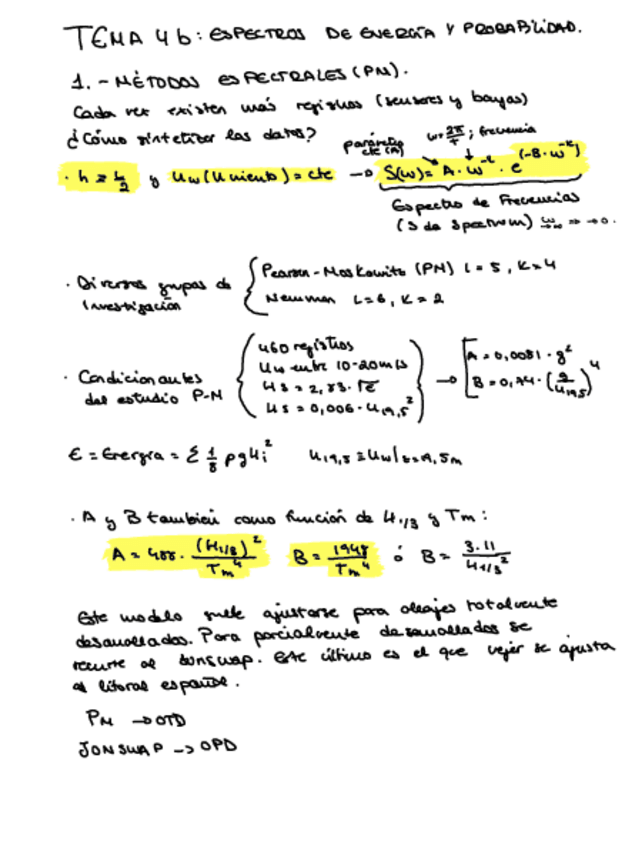 TEMA 4b: ESPECTROS DE ENERGÍA Y PROBABILIDAD.
1.- MÉTODOS ESPECTRALES (PM).
Cada vez existen más registros (sensores y boyas)
¿Cómo sintetizar los datos?
parámetro cte (A)
ω=2π/T ; frecuencia
· h ≥ L/2 y Uw (U viento) = cte → S(ω) = A · ω^-l · e^(-B·ω^-k)
Espectro de Frecuencias
(S de Spectrum)
· Diversos grupos de investigación
Pearson-Moskowitz (PM) l = 5, K = 4
Newman L = 6, K = 2
· Condicionantes del estudio P-M
460 registros
Uw entre 10-20 m/s
Hs = 2,83·√E
Hs = 0,006 · U19,5^2
→ A = 0,0081 · g^2
B = 0,74 · (g/U19,5)^4
E = Energía = Σ 1/8 ρgHi^2 U19,5 ≡ Uw|z=19,5m
· A y B también como función de H1/3 y Tm :
A = 488 · (H1/3)^2/Tm^4 B = 1948/Tm^4 ó B = 3.11/H1/3^2
Este modelo suele ajustarse para oleajes totalmente
desarrollados. Para parcialmente desarrollados se
recurre al Jonswap. Este último es el que mejor se ajusta
al litoral español.
PM → OTD
JONSWAP → OPD